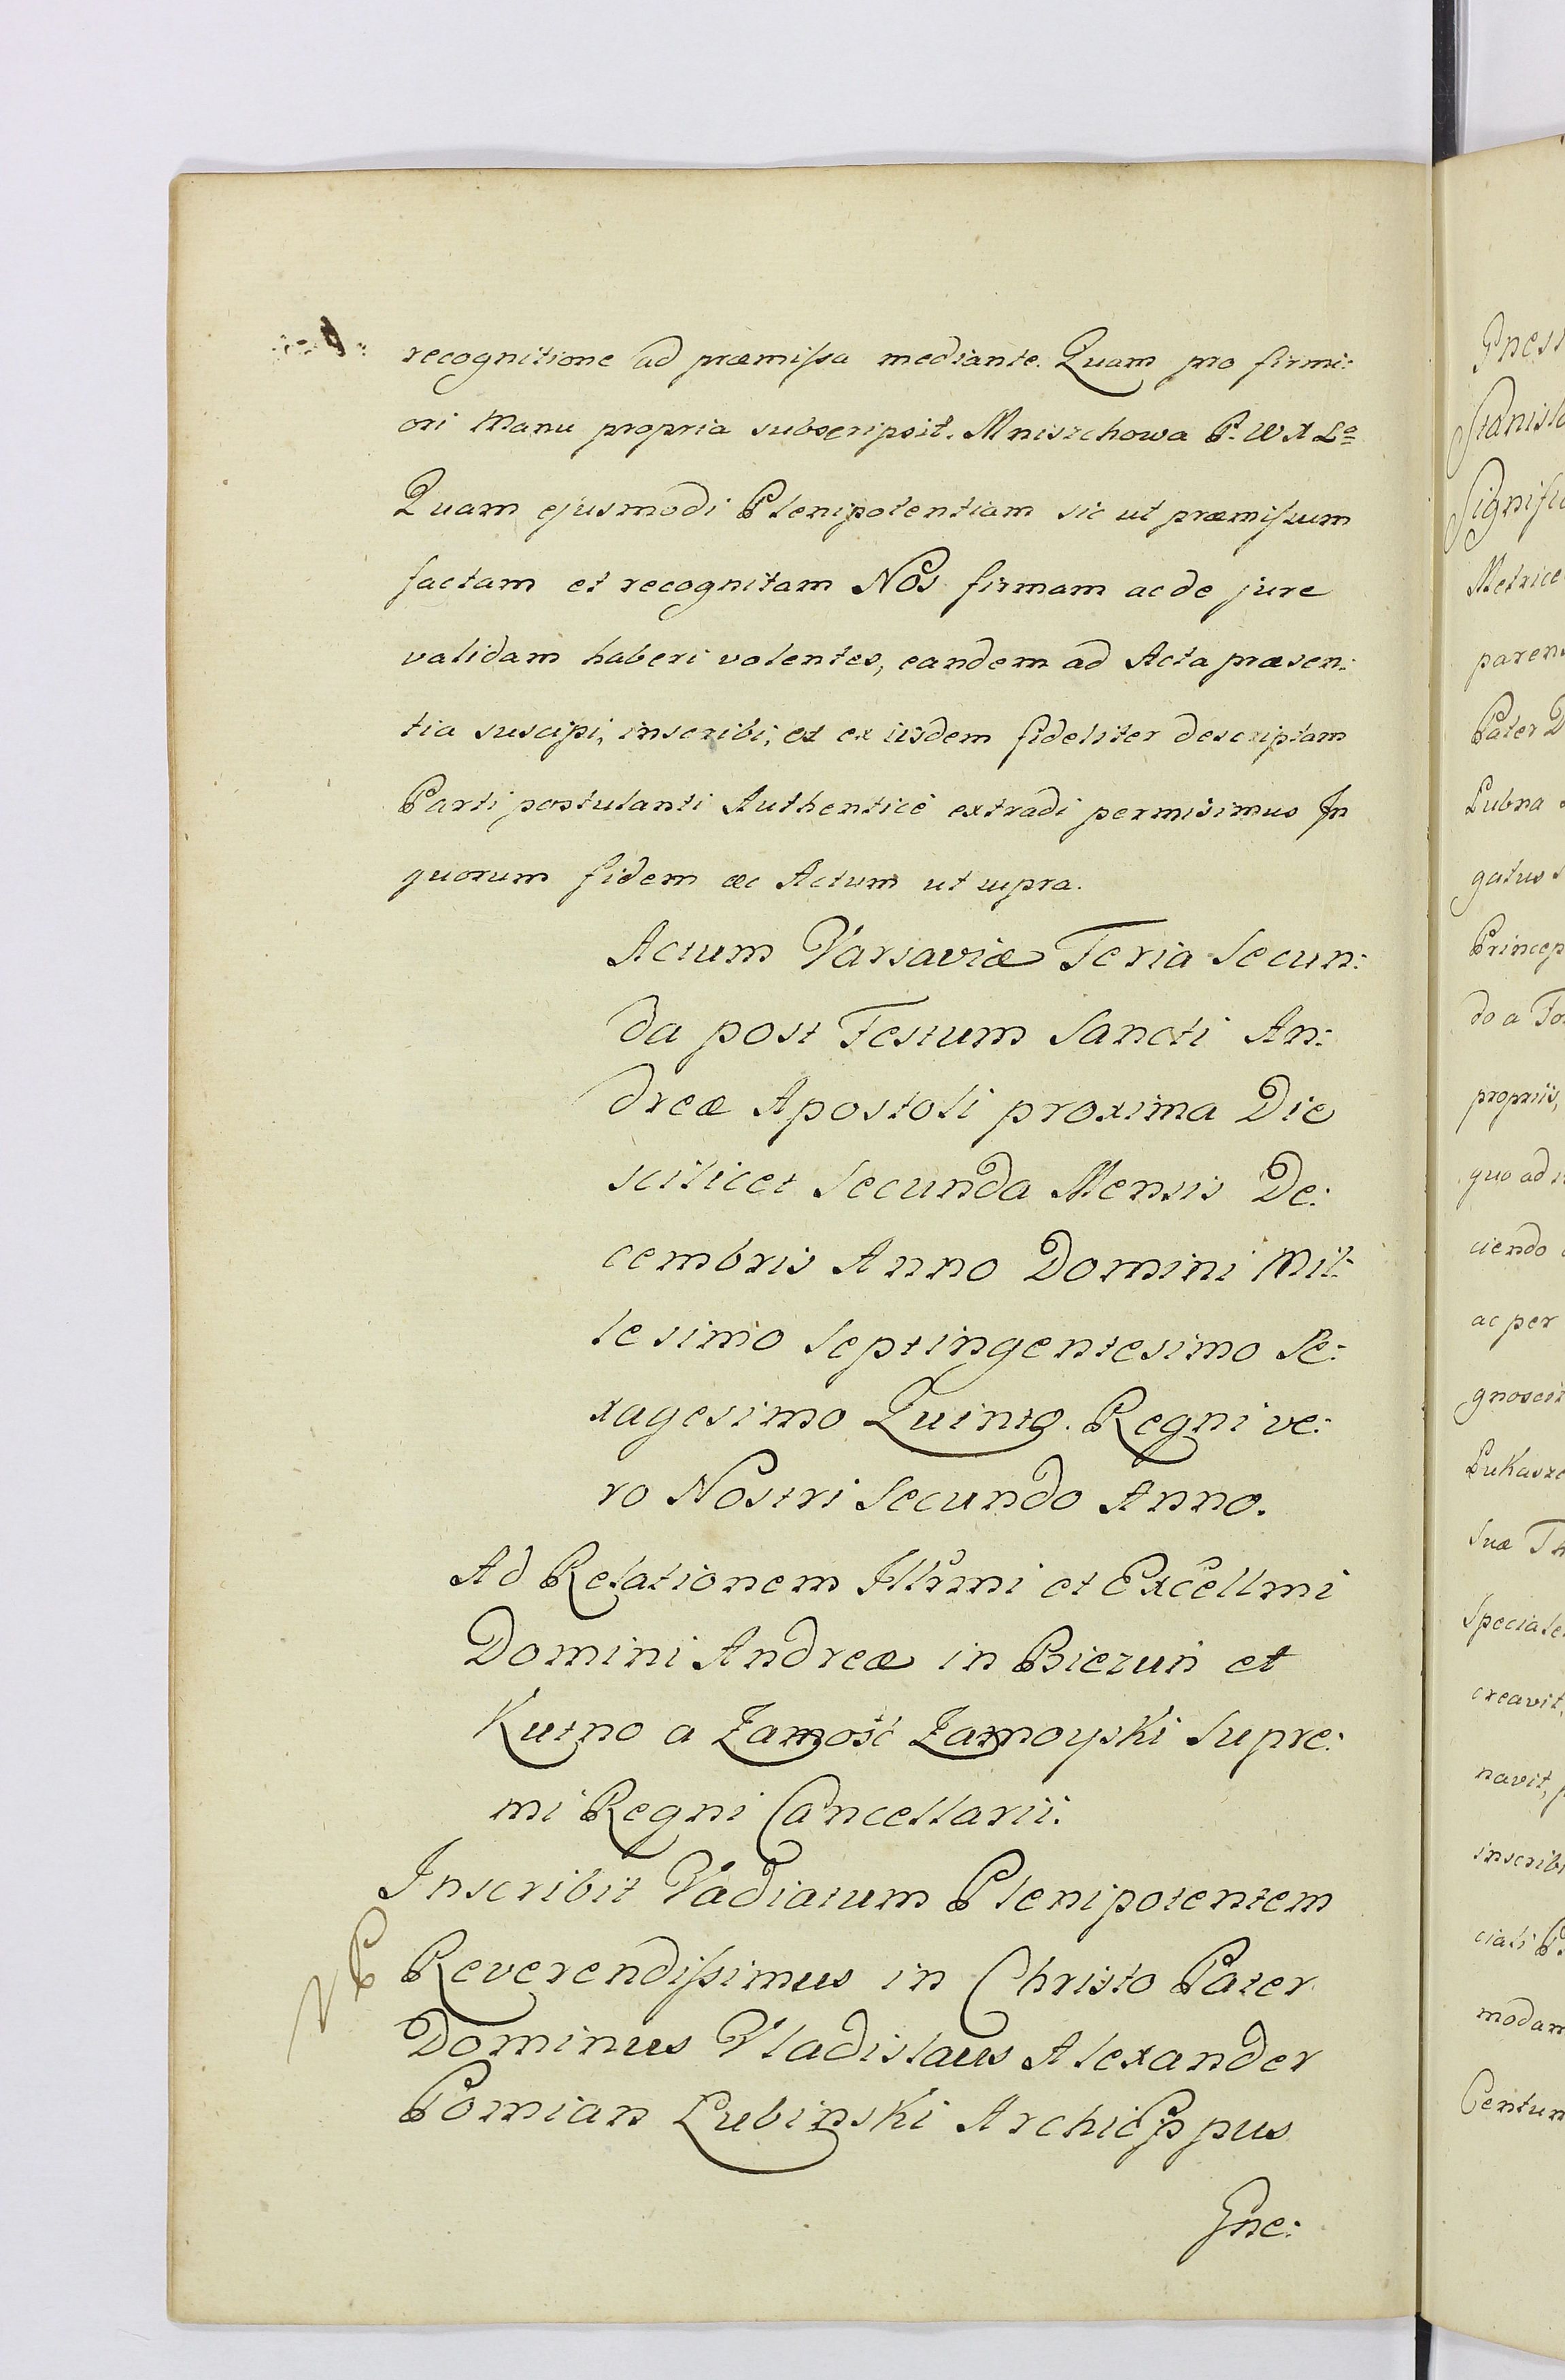 recognitione ad præmissa mediante. Quam pro firmi:
ori Manu propria subscripsit. Mniszchowa P. W X Lo
Quam ejusmodi Plenipotentiam sic ut præmissum
factam et recognitam Nos firmam ac de jure
validam haberi volentes, eandem ad Acta præsen:
tia suscipi, inscribi, et ex iisdem fideliter descriptam
Parti postulanti Authenticè extradi permisimus In
quorum fidem &c Actum ut supra.
Actum Varsaviæ Feria Secun:
da post Festum Sancti An:
dreæ Apostoli proxima Die
scilicet Secunda Mensis De:
cembris Anno Domini Mil:
lesimo Septingentesimo Se:
xagesimo Quinto. Regni ve:
ro Nostri Secundo Anno.
Ad Relationem Illrmi et Excellmi
Domini Andreæ in Biezuń et
Kutno a Zamość Zamoyski Supre:
mi Regni Cancellarii.
Inscribit Vadiatum Plenipotentem
Reverendissimus in Christo Pater
Dominus Vladislaus Alexander
Pomian Lubinski Archieppus
Gne:
Gnes
Stanisla
Metrice
paren
Pater D
Lubna
gatus
Princep
do a
propriis,
quo ad
ciendo
ac per
gnoscit
Lukasze
Suæ Th
Speciale
creavit,
navit,
inscribi
ciali
modam
Centum